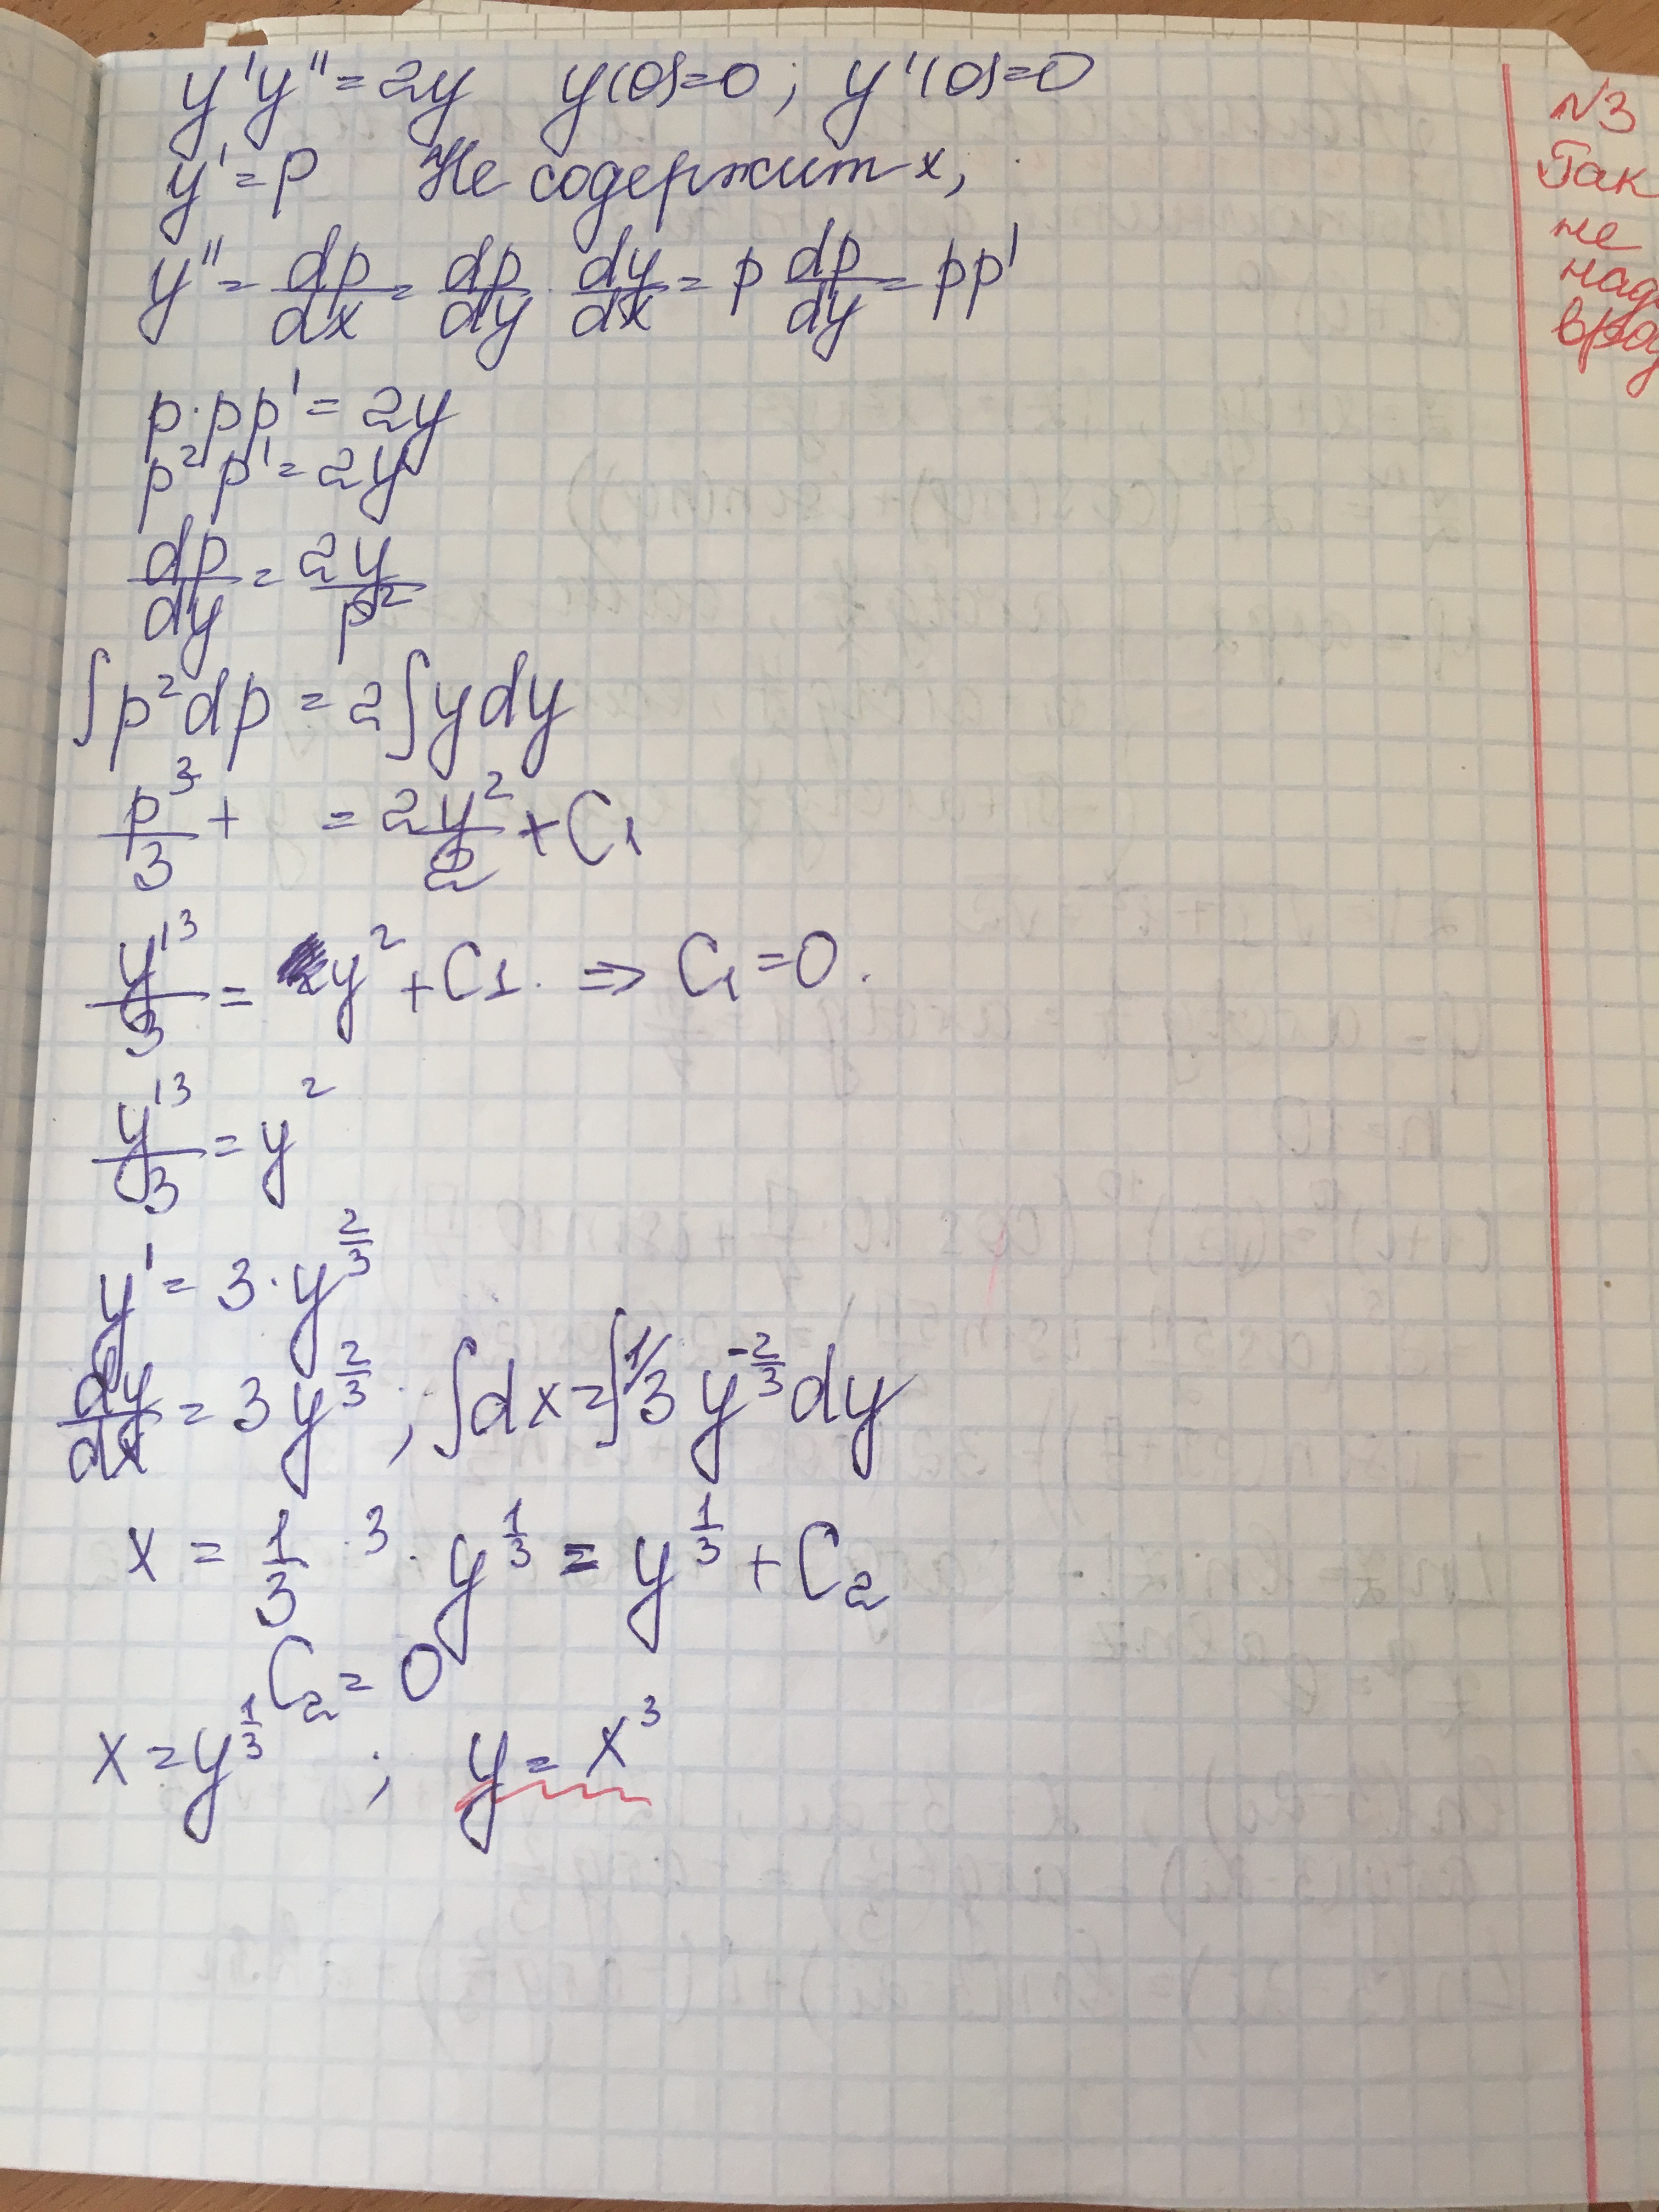 y'y''=2y y(0)=0; y'(0)=0
y'=p Не содержит x,
y''=dp/dx=dp/dy·dy/dx=p dp/dy=pp'
p·pp'=2y
p²p'=2y
dp/dy=2y/p²
∫p²dp=2∫ydy
p³/3+ =2y²/2+C₁
y'³/3=y²+C1. ⇒ C₁=0.
y'³/3=y²
y'=3·y^(2/3)
dy/dx=3y^(2/3); ∫dx=∫1/3 y^(-2/3)dy
x=1/3·3·y^(1/3)=y^(1/3)+C₂
C₂=0
x=y^(1/3); y=x³
N3
Так
не